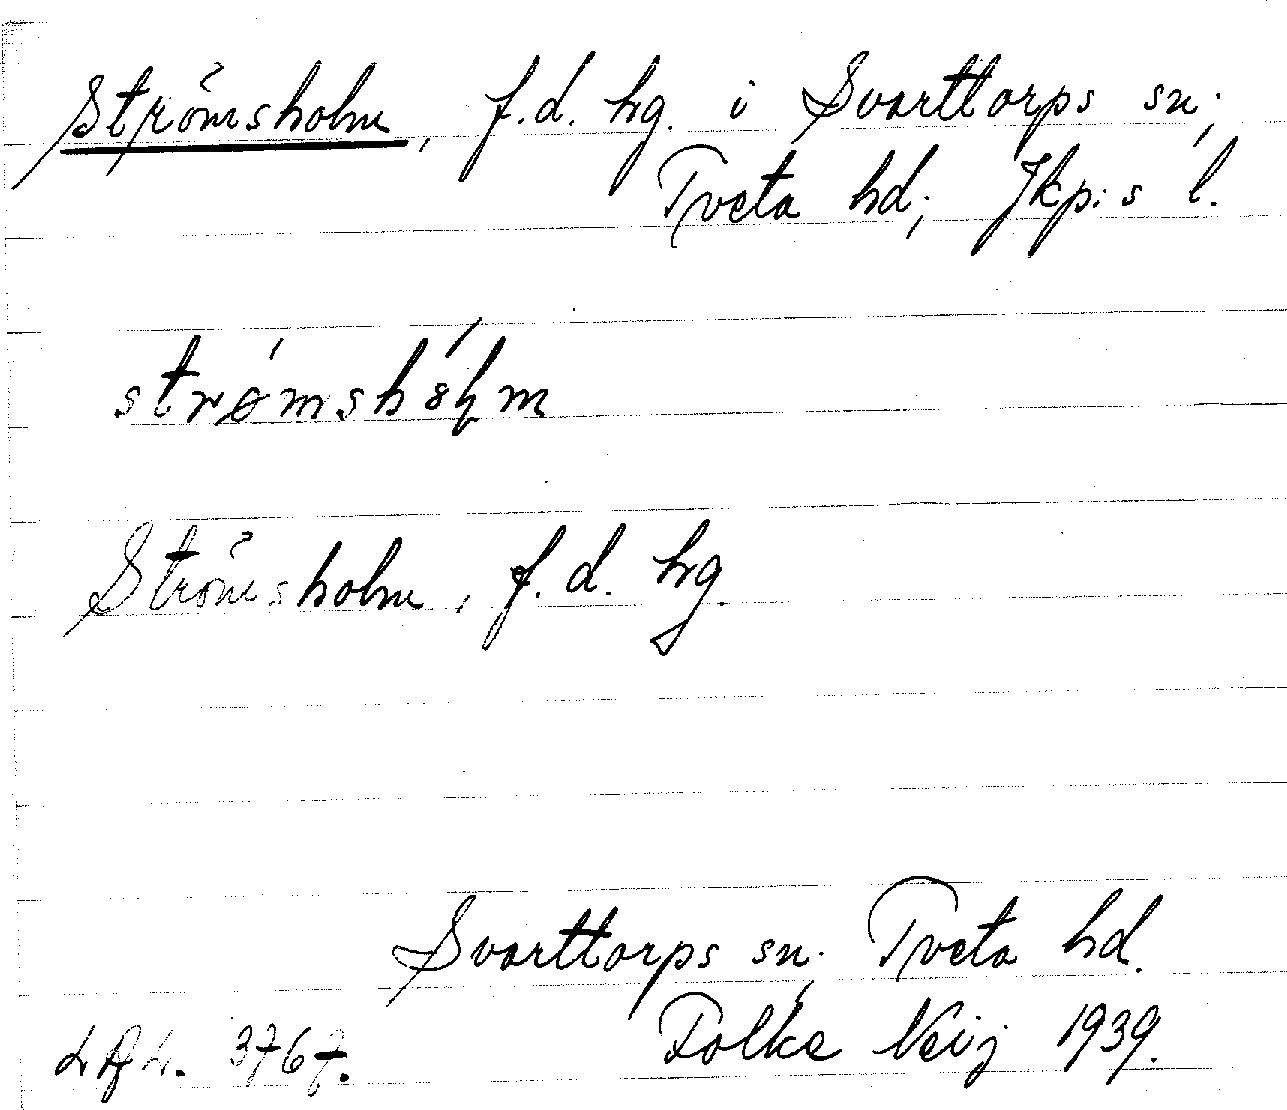 Strömsholm, f.d. hg. i Svarttorps sn;
Tveta hd; Jkp:s l.
Strömsholm, f.d. hg.
Svarttorps sn; Tveta hd.
Folke Neij 1939.
3767.